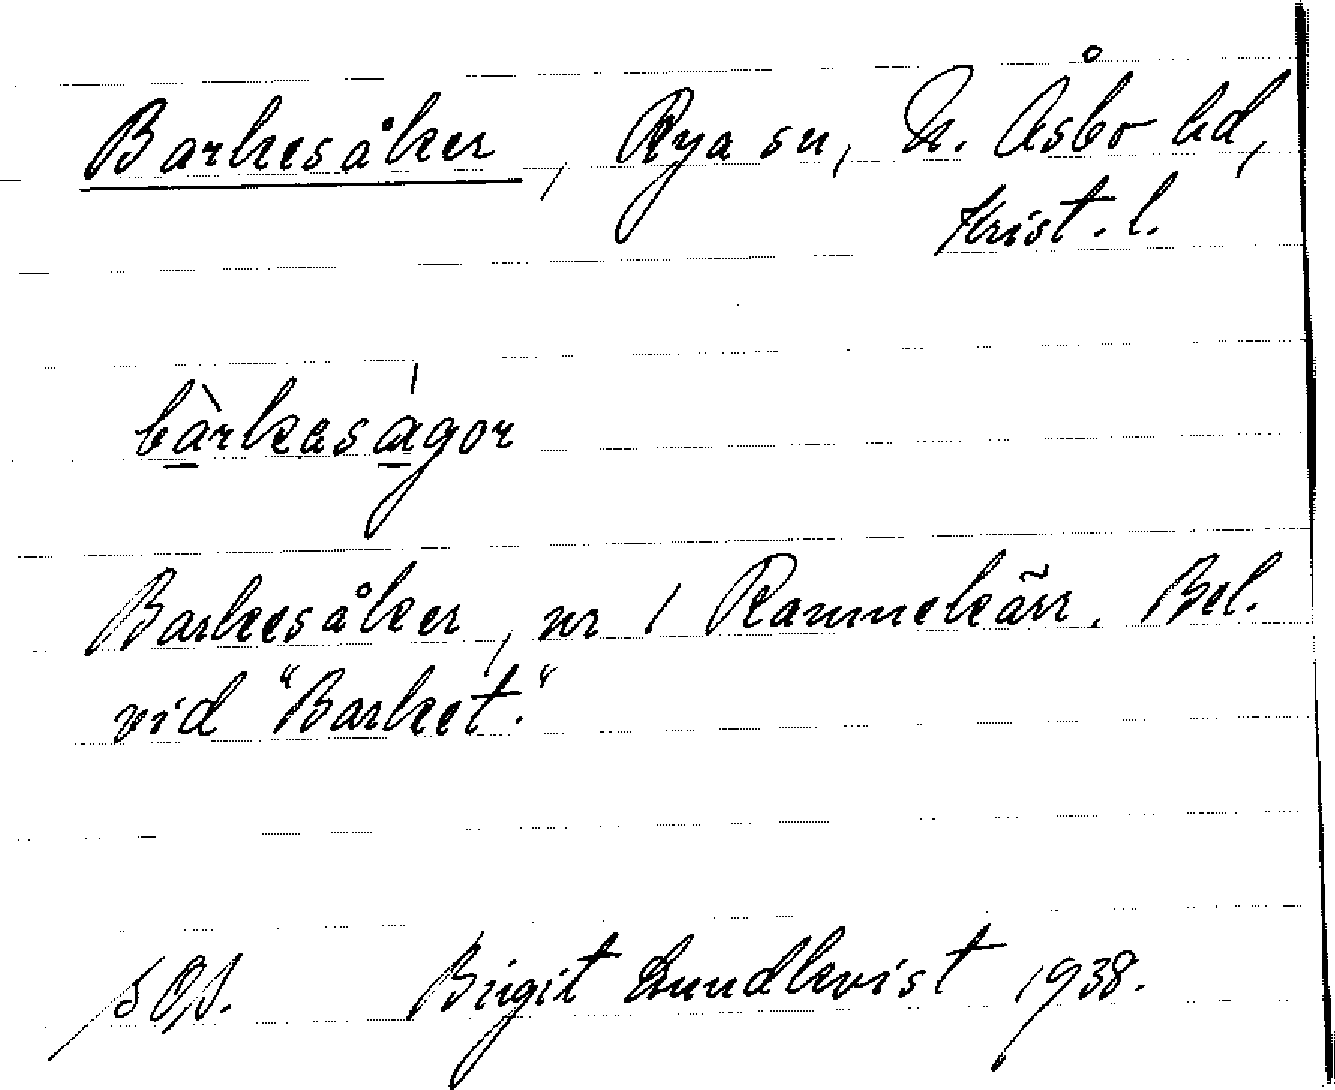 Barkesåker, Rya sn, N. Åsbo hd,
Krist. l.
bàrkaságor
Barkesåker, nr 1 Rammekärr. Bel.
vid "Barket."
Birgit Lundkvist 1938.